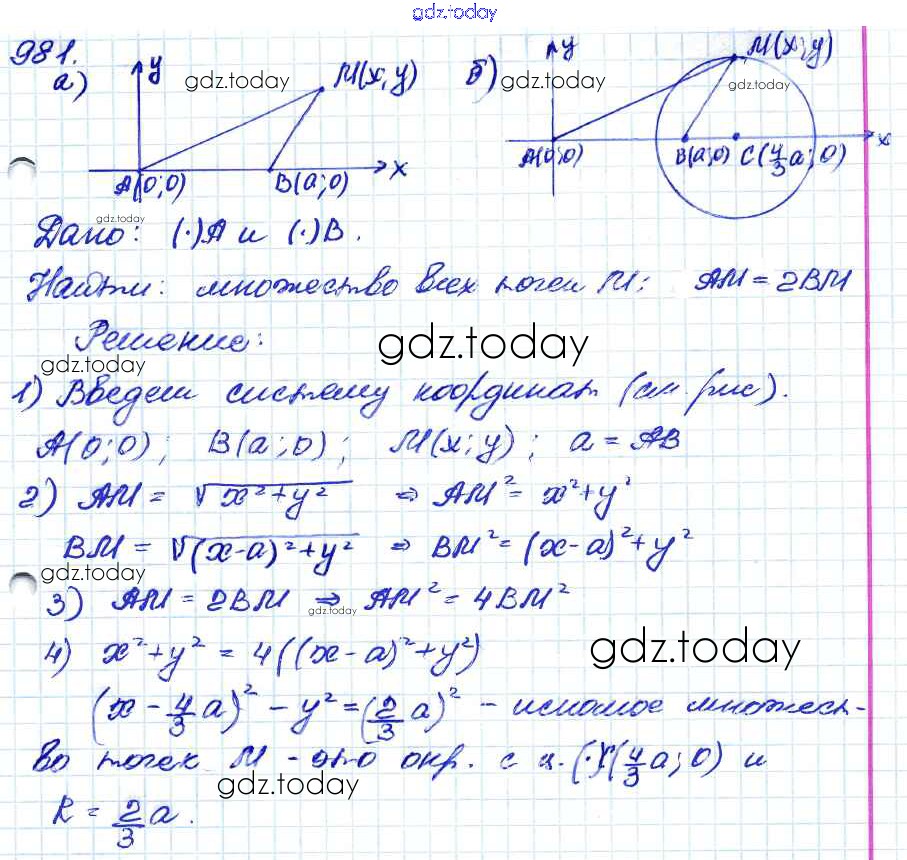 gdz.today
981.
а)
y
M(x; y)
gdz.today
A(0;0)
B(a;0)
x
б)
y
M(x; y)
gdz.today
gdz.today
A(0;0)
B(a;0)
C(4/3 a; 0)
x
gdz.today
Дано: (·)A и (·)B.
Найти: множество всех точек M: AM = 2BM
Решение:
gdz.today
gdz.today
1) Введем систему координат (см. рис).
A(0;0); B(a;0); M(x; y); a = AB
2) AM = √x²+y² ⇒ AM² = x²+y²
BM = √(x-a)²+y² ⇒ BM² = (x-a)²+y²
gdz.today
3) AM = 2BM ⇒ AM² = 4BM²
gdz.today
4) x²+y² = 4((x-a)²+y²)
gdz.today
(x - 4/3 a)² - y² = (2/3 a)² - искомое множест-
во точек M - это окр. с ц. (·)(4/3 a; 0) и
gdz.today
R = 2/3 a.